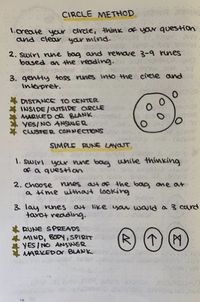 CIRCLE METHOD
1. create your circle, think of your question
and clear your mind.
2. swirl rune bag and remove 3-9 runes
based on the reading.
3. gently toss runes into the circle and
interpret.
DISTANCE TO CENTER
INSIDE/OUTSIDE CIRCLE
MARKED OR BLANK
YES/NO ANSWER
CLUSTER CONNECTIONS
SIMPLE RUNE LAYOUT
1. swirl your rune bag while thinking
of a question
2. choose runes out of the bag, one at
a time without looking
3. lay runes out like you would a 3 card
tarot reading.
RUNE SPREADS
MIND, BODY, SPIRIT
YES/NO ANSWER
MARKED OR BLANK
ᚱ ᛏ ᛗ